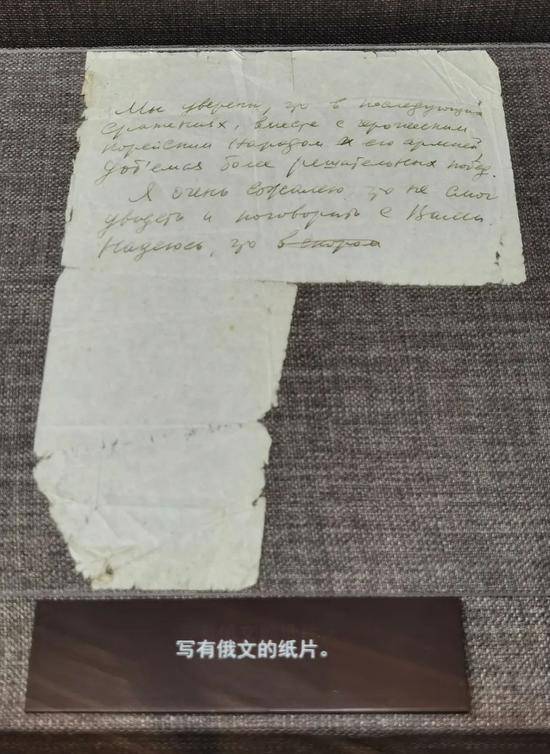 Мы уверены, що в последующих
сражениях, вместе с героическим
корейским народом и его армией
доб'емся более решательных побед.
Я очень сожалею, що не смог
увидеть и поговорить с Вами.
Надеюсь, що в скором
写有俄文的纸片。